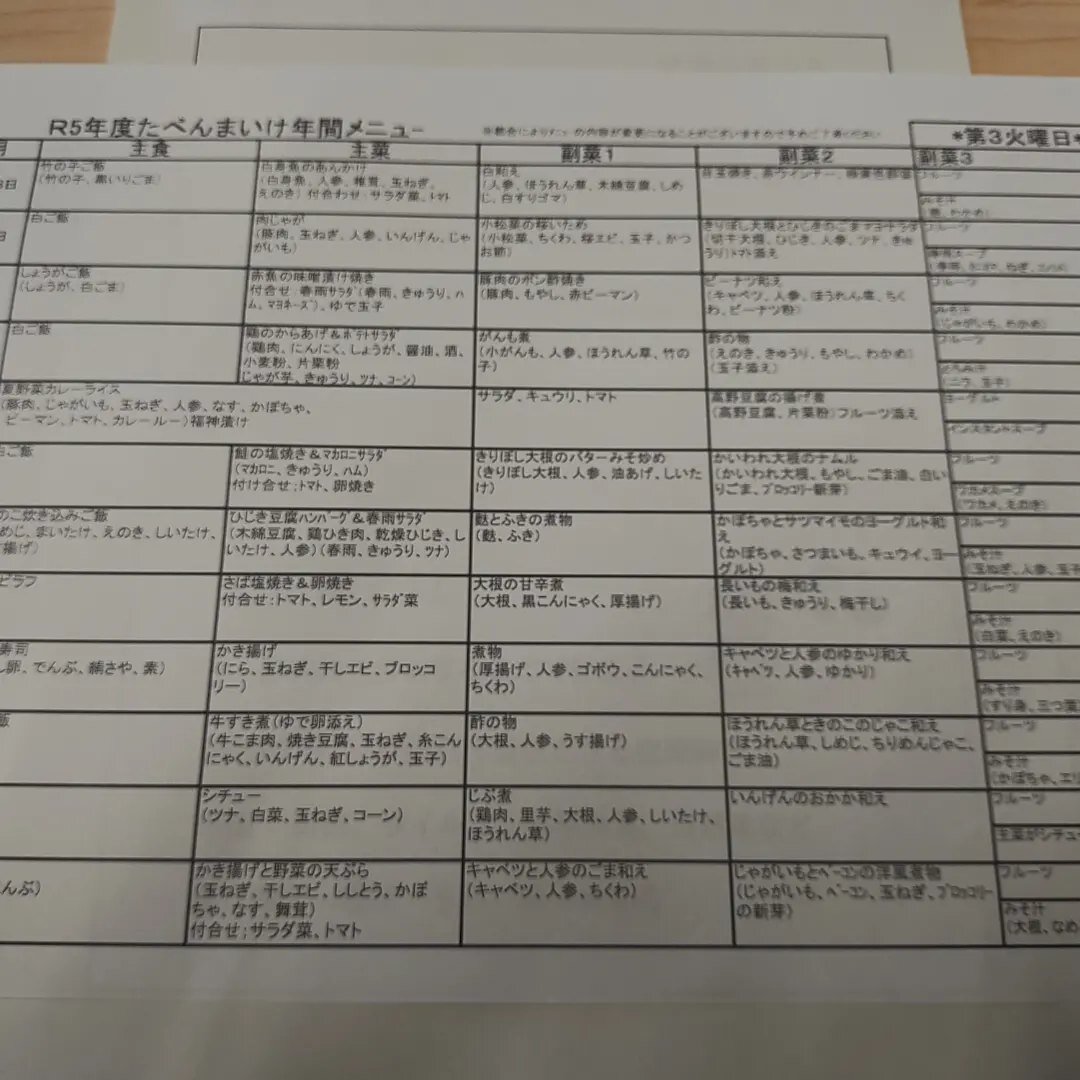 R5年度たべんまいけ年間メニュー
*第3火曜日*
月 主食 主菜 副菜1 副菜2 副菜3
竹の子ご飯
(竹の子、黒いりごま)
白身魚のあんかけ
(白身魚、人参、椎茸、玉ねぎ、
えのき) 付合わせ:サラダ菜、トマト
白和え
(人参、ほうれん草、木綿豆腐、しめ
じ、白すりゴマ)
フルーツ
みそ汁
白ご飯
肉じゃが
(豚肉、玉ねぎ、人参、いんげん、じゃ
がいも)
小松菜の炒いため
(小松菜、ちくわ、桜エビ、玉子、かつ
お節)
きりぼし大根とひじきのごまマヨサラダ
(切干大根、ひじき、人参、ツナ、きゅ
うり)トマト添え
フルーツ
しょうがご飯
(しょうが、白ごま)
赤魚の味噌漬け焼き
付合せ:春雨サラダ(春雨、きゅうり、ハ
ム、マヨネーズ)、ゆで玉子
豚肉のポン酢焼き
(豚肉、もやし、赤ピーマン)
ピーナツ和え
(キャベツ、人参、ほうれん草、ちく
わ、ピーナツ粉)
フルーツ
みそ汁
(じゃがいも、わかめ)
白ご飯
鶏のからあげ&ポテトサラダ
(鶏肉、にんにく、しょうが、醤油、酒、
小麦粉、片栗粉
じゃが芋、きゅうり、ツナ、コーン)
がんも煮
(小がんも、人参、ほうれん草、竹の
子)
酢の物
(えのき、きゅうり、もやし、わかめ)
(玉子添え)
フルーツ
夏野菜カレーライス
(豚肉、じゃがいも、玉ねぎ、人参、なす、かぼちゃ、
ピーマン、トマト、カレールー)福神漬け
サラダ、キュウリ、トマト
高野豆腐の揚げ煮
(高野豆腐、片栗粉)フルーツ添え
ヨーグルト
インスタントスープ
白ご飯
鮭の塩焼き&マカロニサラダ
(マカロニ、きゅうり、ハム)
付け合せ;トマト、卵焼き
きりぼし大根のバターみそ炒め
(きりぼし大根、人参、油あげ、しいた
け)
かいわれ大根のナムル
(かいわれ大根、もやし、ごま油、白い
りごま、ブロッコリー新芽)
フルーツ
ワカメスープ
(ワカメ、えのき)
のこ炊き込みご飯
めじ、まいたけ、えのき、しいたけ、
揚げ)
ひじき豆腐ハンバーグ&春雨サラダ
(木綿豆腐、鶏ひき肉、乾燥ひじき、し
いたけ、人参)(春雨、きゅうり、ツナ)
麩とふきの煮物
(麩、ふき)
かぼちゃとサツマイモのヨーグルト和
え
(かぼちゃ、さつまいも、キュウイ、ヨー
グルト)
フルーツ
みそ汁
(玉ねぎ、人参、玉子
ピラフ
さば塩焼き&卵焼き
付合せ:トマト、レモン、サラダ菜
大根の甘辛煮
(大根、黒こんにゃく、厚揚げ)
長いもの梅和え
(長いも、きゅうり、梅干し)
フルーツ
みそ汁
(白菜、えのき)
寿司
し卵、でんぶ、絹さや、素)
かき揚げ
(にら、玉ねぎ、干しエビ、ブロッコ
リー)
煮物
(厚揚げ、人参、ゴボウ、こんにゃく、
ちくわ)
キャベツと人参のゆかり和え
(キャベツ、人参、ゆかり)
フルーツ
みそ汁
(すり身、三つ葉
飯
牛すき煮(ゆで卵添え)
(牛こま肉、焼き豆腐、玉ねぎ、糸こん
にゃく、いんげん、紅しょうが、玉子)
酢の物
(大根、人参、うす揚げ)
ほうれん草ときのこのじゃこ和え
(ほうれん草、しめじ、ちりめんじゃこ、
ごま油)
フルーツ
みそ汁
(かぼちゃ、エリ
シチュー
(ツナ、白菜、玉ねぎ、コーン)
じぶ煮
(鶏肉、里芋、大根、人参、しいたけ、
ほうれん草)
いんげんのおかか和え
フルーツ
主菜がシチュ
んぶ)
かき揚げと野菜の天ぷら
(玉ねぎ、干しエビ、ししとう、かぼ
ちゃ、なす、舞茸)
付合せ;サラダ菜、トマト
キャベツと人参のごま和え
(キャベツ、人参、ちくわ)
じゃがいもとベーコンの洋風煮物
(じゃがいも、ベーコン、玉ねぎ、ブロッコリー
の新芽)
フルーツ
みそ汁
(大根、なめ